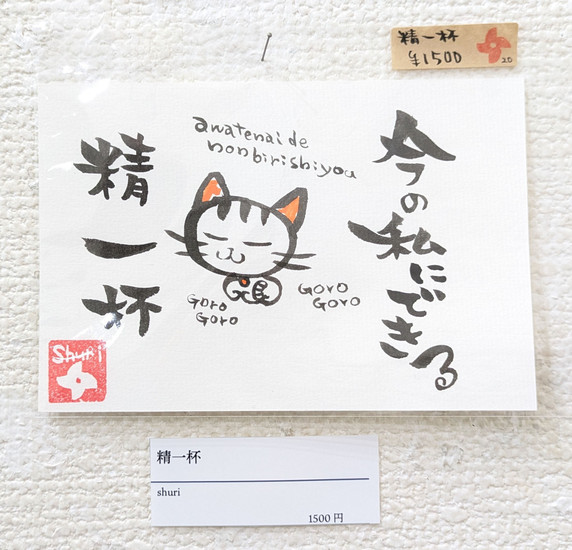 精一杯
¥1500
20
今の私にできる
精一杯
awatenaide
nonbirishiyou
Goro
Goro
Goro
Goro
Shuri
精一杯
shuri
1500 円